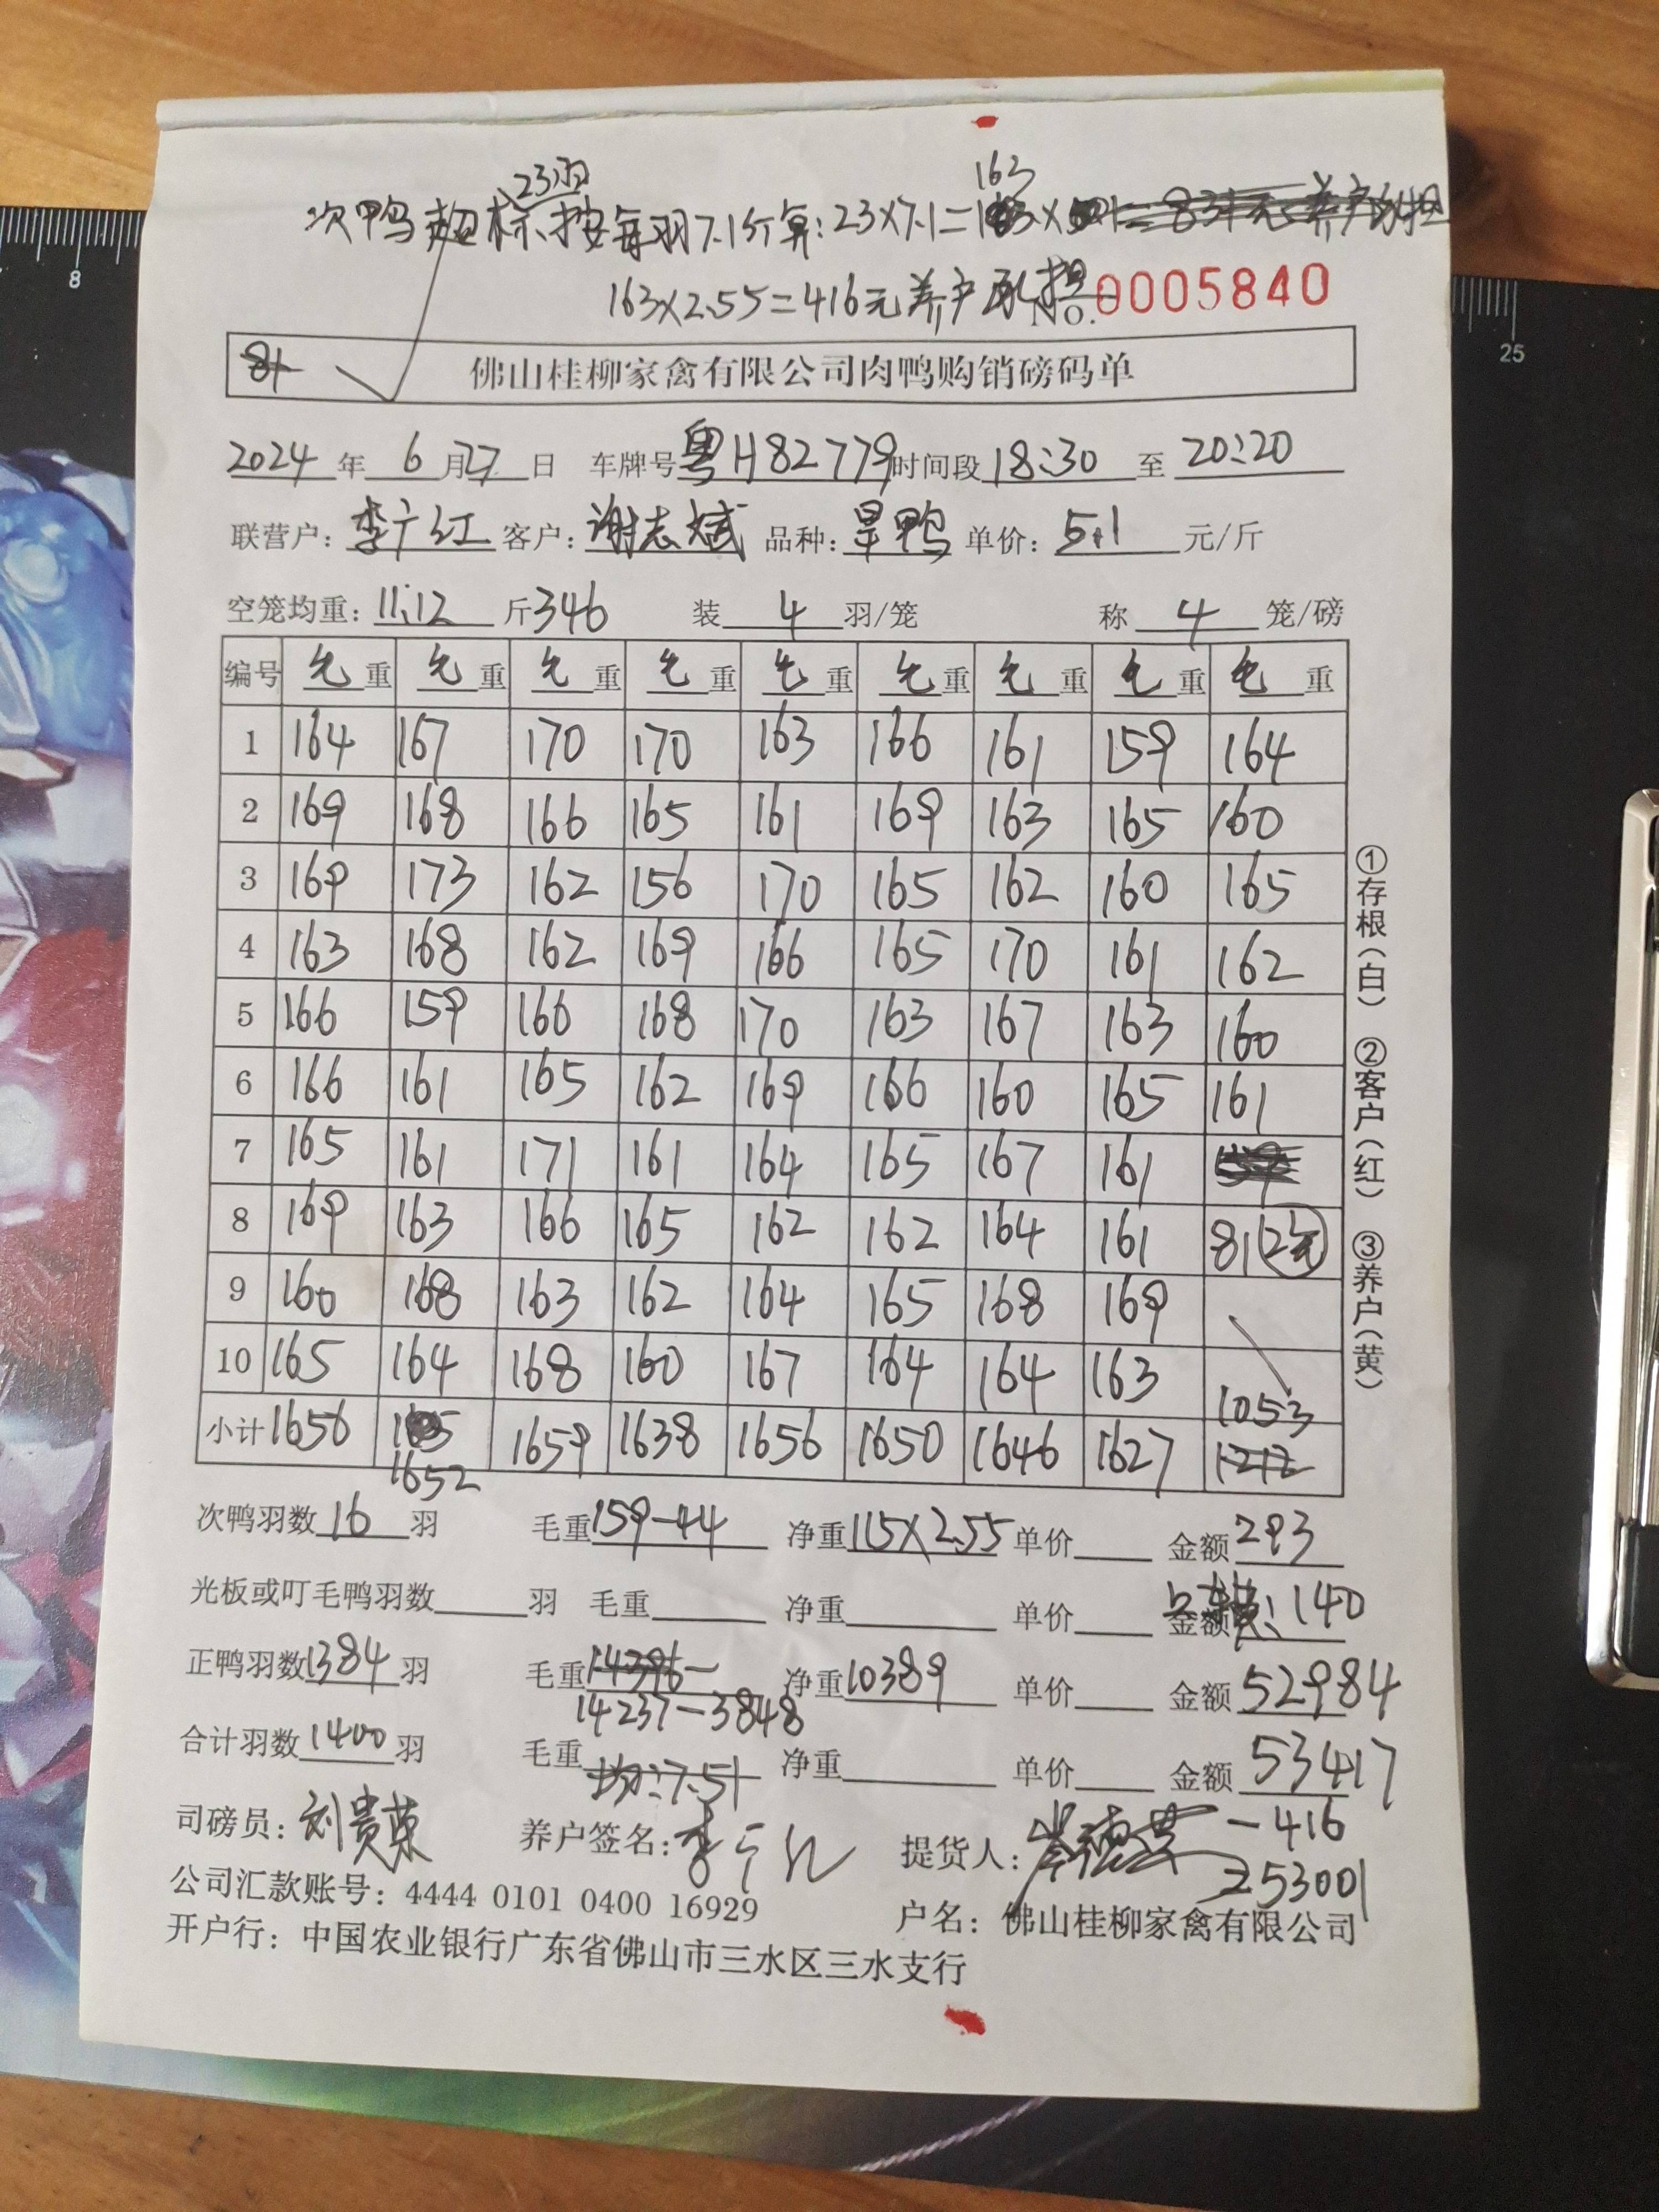 23羽
163
次鸭超标.按每羽7.1斤算:23×7.1=163×5.1=831元养户承担
163×2.55=416元养户承担
No.0005840
81
佛山桂柳家禽有限公司肉鸭购销磅码单
2024年6月27日 车牌号粤H82779时间段18:30至20:20
联营户:李广红 客户:谢志斌 品种:旱鸭 单价:5.1元/斤
空笼均重:11.12斤346 装4羽/笼 称4笼/磅
编号 毛重 毛重 毛重 毛重 毛重 毛重 毛重 毛重 毛重
1 164 167 170 170 163 166 161 159 164
2 169 168 166 165 161 169 163 165 160
3 169 173 162 156 170 165 162 160 165
4 163 168 162 169 166 165 170 161 162
5 166 159 166 168 170 163 167 163 160
6 166 161 165 162 169 166 160 165 161
7 165 161 171 161 164 165 167 161 159
8 169 163 166 165 162 162 164 161 81(2笼)
9 160 168 163 162 164 165 168 169
10 165 164 168 160 167 164 164 163
1053
小计 1656 1659 1638 1656 1650 1646 1627 1212
1652
次鸭羽数16羽 毛重159-44 净重115×2.55 单价 金额293
光板或叮毛鸭羽数 羽 毛重 净重 单价 金额 140
正鸭羽数1384羽 毛重14396- 净重10389 单价 金额52984
14237-3848
合计羽数1400羽 毛重 净重 单价 金额53417
均:7.51
-416
司磅员:刘贵荣 养户签名:李广红 提货人:
=53001
公司汇款账号:4444 0101 0400 16929
户名:佛山桂柳家禽有限公司
开户行:中国农业银行广东省佛山市三水区三水支行
①存根(白) ②客户(红) ③养户(黄)
8
25